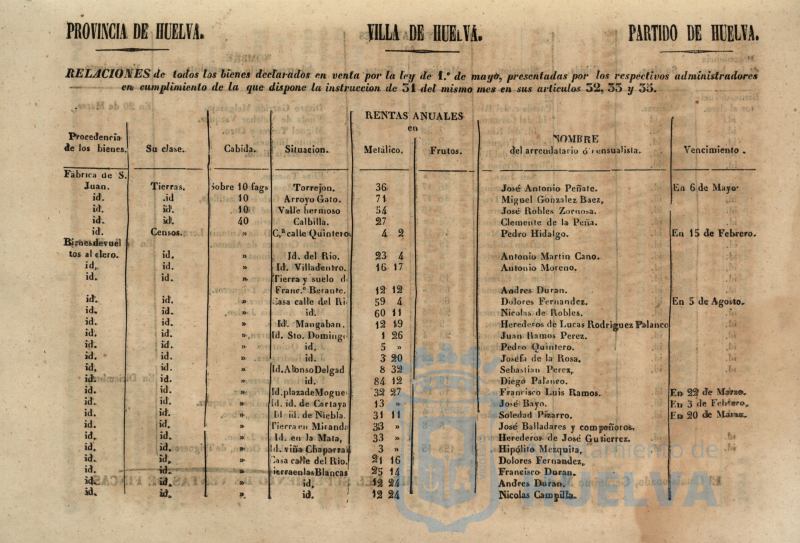 PROVINCIA DE HUELVA. VILLA DE HUELVA. PARTIDO DE HUELVA.
RELACIONES de todos los bienes declarados en venta por la ley de 1.º de mayo, presentadas por los respectivos administradores
en cumplimiento de la que dispone la instruccion de 31 del mismo mes en sus articulos 32, 33 y 35.
RENTAS ANUALES
en
Procedencia NOMBRE
de los bienes. Su clase. Cabida. Situacion. Metálico. Frutos. del arrendatario ó censualista. Vencimiento.
Fábrica de S.
Juan. Tierras. Sobre 10 fags Torrejon. 36 José Antonio Peñate. En 6 de Mayo
id. .id 10 Arroyo Gato. 71 Miguel Gonzalez Baez,
id. id. 10 Valle hermoso 54 José Robles Zornosa.
id. id. 40 Calbilla. 27 Clemente de la Peña.
id. Censos. » C.ª calle Quintero 4 2 Pedro Hidalgo. En 15 de Febrero.
Bienes devuel
tos al clero. id. » Id. del Rio. 23 4 Antonio Martin Cano.
id. id. » Id. Villadentro. 16 17 Antonio Moreno.
id. id. » Tierra y suelo d
Franc.º Berante. 12 12 Andres Duran.
id. id. » Casa calle del Ri 59 4 Dolores Fernandez. En 5 de Agosto.
id. id. » id. 60 11 Nicolas de Robles.
id. id. » Id. Mangaban. 12 19 Herederos de Lucas Rodriguez Palanco
id. id. » Id. Sto. Domingo 1 26 Juan Ramos Perez.
id. id. » id. 5 » Pedro Quintero.
id. id. » id. 3 20 Josefa de la Rosa.
id. id. » Id. Alonso Delgad 8 32 Sebastian Perez,
id. id. » id. 84 12 Diego Palanco.
id. id. » Id. plaza de Mogue 32 27 Francisco Luis Ramos. En 22 de Marzo.
id. id. » Id. id. de Cartaya 13 » José Bayo. En 3 de Febrero.
id. id. » Id id. de Niebla. 31 11 Soledad Pizarro. En 20 de Marzo.
id. id. » Tierra en Miranda 33 » José Balladares y compeñoros.
id. id. » Id. en la Mata, 33 » Herederos de José Gutierrez.
id. id. » Id. viña Chaparral 3 » Hipólito Mezquita.
id. id. » Casa calle del Rio. 21 16 Dolores Fernandez,
id. id. » Tierra en las Blancas 25 14 Francisco Duran.
id. id. » id, 12 24 Andres Duran.
id. id. » id. 12 24 Nicolas Campilla.
Ayuntamiento de
HUELVA